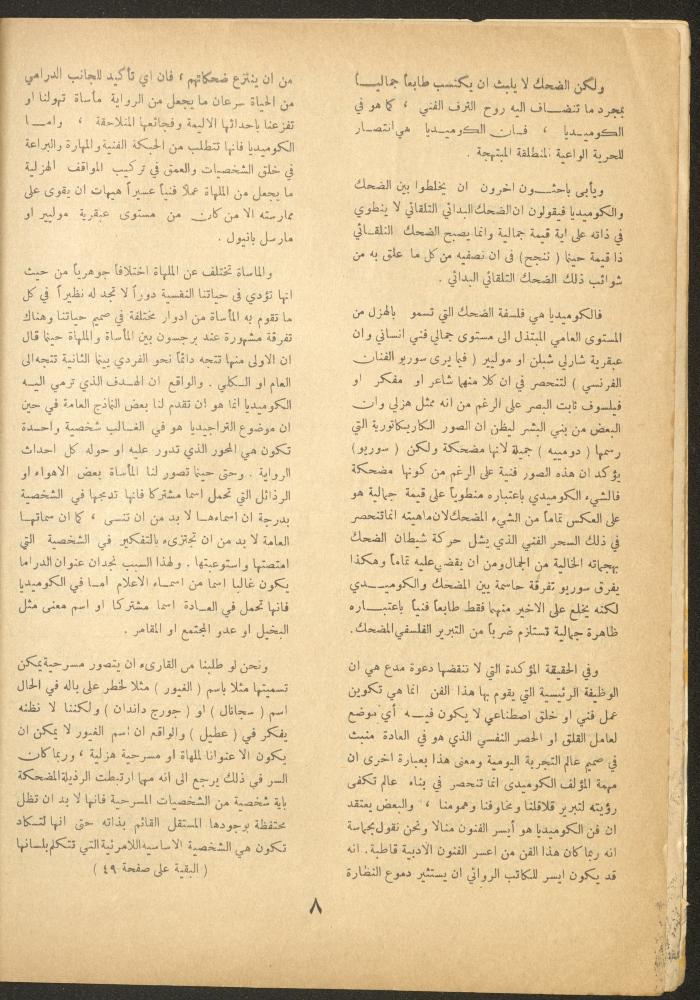 ولكن الضحك لا يلبث ان يكتسب طابعاً جماليـــاً
بمجرد ما تنضـــاف اليه روح الترف الفني ، كما هو في
الكوميـــديا ، فـــان الكوميـــديا هي انتصـــار
للحرية الواعية المنطلقة المبتهجة .
ويأبى باحثـــون اخرون ان يخلطوا بين الضحك
والكوميديا فيقولون ان الضحك البدائي التلقائي لا ينطوي
في ذاته على اية قيمة جمالية وانما يصبح الضحك التلقـــائي
ذا قيمة حينما ( ننجح ) في ان نصفيه من كل ما علق به من
شوائب ذلك الضحك التلقائي البدائي .
فالكوميديا هي فلسفة الضحك التي تسمو بالهزل من
المستوى العامي المبتذل الى مستوى جمالي فني انساني وان
عبقرية شارلي شبلن او موليير ( فيما يرى سوريو الفنان
الفرنسي ) لتنحصر في ان كلا منهما شاعر او مفكر او
فيلسوف ثابت البصر على الرغم من انه ممثل هزلي وان
البعض من بني البشر ليظن ان الصور الكاريكاتورية التي
رسمها ( دومييه ) جميلة لانها مضحكة ولكن ( سوريو )
يؤكد ان هذه الصور فنية على الرغم من كونها مضحكة
فالشيء الكوميدي باعتباره منطوياً على قيمة جمالية هو
على العكس تماماً من الشيء المضحك لان ماهيته انما تنحصر
في ذلك السحر الفني الذي يشل حركة شيطان الضحك
بهجماته الخالية من الجمال ومن ان يقضي عليه تماماً وهكذا
يفرق سوريو تفرقة حاسمة بين المضحك والكوميـــدي
لكنه يخلع على الاخير منهما فقط طابعاً فنياً باعتبـــاره
ظاهرة جمالية تستلزم ضرباً من التبرير الفلسفي المضحك .
وفي الحقيقة المؤكدة التي لا تنقضها دعوة مدع هي ان
الوظيفة الرئيسية التي يقوم بها هذا الفن انما هي تكوين
عمل فني او خلق اصطناعي لا يكون فيـــه أي موضع
لعامل القلق او الحصر النفسي الذي هو في العادة منبث
في صميم عالم التجربة اليومية ومعنى هذا بعبارة اخرى ان
مهمة المؤلف الكوميدي انما تنحصر في بناء عالم تكفى
رؤيته لتبرير قلاقلنا ومخاوفنا وهمومنا ، والبعض يعتقد
ان فن الكوميديا هو أيسر الفنون منالا ونحن نقول بحماسة
انه ربما كان هذا الفن من اعسر الفنون الادبية قاطبة . انه
قد يكون ايسر للكاتب الروائي ان يستثير دموع النظارة
من ان ينتزع ضحكاتهم ، فان اي تأكيد للجانب الدرامي
من الحياة سرعان ما يجعل من الرواية مأساة تهولنا او
تفزعنا باحداثها الاليمة وفجائعها المتلاحقة ، وامـــا
الكوميديا فانها تتطلب من الحبكة الفنية والمهارة والبراعة
في خلق الشخصيات والعمق في تركيب المواقف الهزلية
ما يجعل من الملهاة عملا فنياً عسيراً هيهات ان يقوى على
ممارسته الا من كان من مستوى عبقرية موليير او
مارسل بانيول .
والمأساة تختلف عن الملهاة اختلافاً جوهرياً من حيث
انها تؤدي في حياتنا النفسية دوراً لا تجد له نظيراً في كل
ما تقوم به المأساة من ادوار مختلفة في صميم حياتنا وهناك
تفرقة مشهورة عند برجسون بين المأساة والملهاة حينما قال
ان الاولى منها تتجه دائماً نحو الفردي بينما الثانية تتجه الى
العام او الكلي . والواقع ان الهـــدف الذي ترمي اليـــه
الكوميديا انما هو ان تقدم لنا بعض النماذج العامة في حين
ان موضوع التراجيديا هو في الغـــالب شخصية واحـــدة
تكون هي المحور الذي تدور عليه او حوله كل احداث
الرواية . وحتى حينما تصور لنا المأساة بعض الاهواء او
الرذائل التي تحمل اسما مشتركا فانها تدمجها في الشخصية
بدرجة ان اسماءهـــا لا بد من ان تنســـى ، كما ان سماتهـــا
العامة لا بد من ان تجتزىء بالتفكير في الشخصية التي
امتصتها واستوعبتها . ولهذا السبب نجد ان عنوان الدراما
يكون غالبا اسما من اسمـــاء الاعلام أمـــا في الكوميديا
فانها تحمل في العـــادة اسما مشتركا او اسم معنى مثل
البخيل او عدو المجتمع او المقامر .
ونحن لو طلبنا من القارىء ان يتصور مسرحية يمكن
تسميتها مثلا باسم ( الغيور ) مثلا لخطر على باله في الحال
اسم ( سجانال ) او ( جورج داندان ) ولكننا لا نظنه
يفكر في ( عطيل ) والواقع ان اسم الغيور لا يمكن ان
يكون الا عنوانا لملهاة او مسرحية هزلية ، وربما كان
السر في ذلك يرجع الى انه مهما ارتبطت الرذيلة المضحكة
باية شخصية من الشخصيات المسرحية فانها لا بد ان تظل
محتفظة بوجودها المستقل القائم بذاته حتى انها لتـــكاد
تكون هي الشخصية الاساسية اللامرئية التي تتكلم بلسانها
( البقية على صفحة ٤٩ )
٨